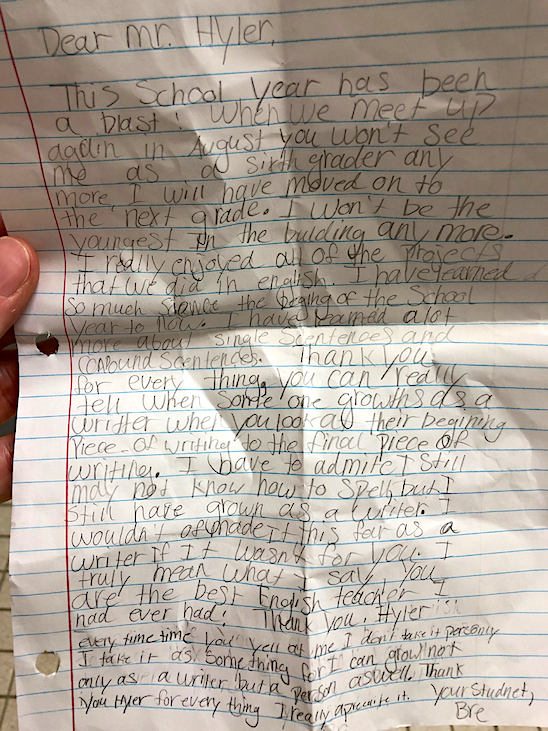 Dear mr. Hyler,
This School year has been
a blast! When we meet up
again in August you won't see
me as a sixth grader any
more, I will have moved on to
the next grade. I won't be the
youngest in the building any more.
I really enjoyed all of the projects
that we did in english. I have learned
so much scance the beging of the School
year to now. I have learned a lot
more about single scentences and
compound scentences. Thank you
for every thing, you can really
tell when some one growths as a
writter when you look at their begining
Piece of writing to the final piece of
writing. I have to admite I still
may not know how to spell, but I
still have grown as a writer. I
wouldn't of made it this far as a
writer If It wasn't for you. I
truly mean what I say you
are the best English teacher I
had ever had! Thank you, Hyler
every time time you yell at me I don't take it personly
I take it as something for I can grow not
only as a writer but a person as well. Thank
you Hyler for every thing I really apreciate it. Your Studnet,
Bre